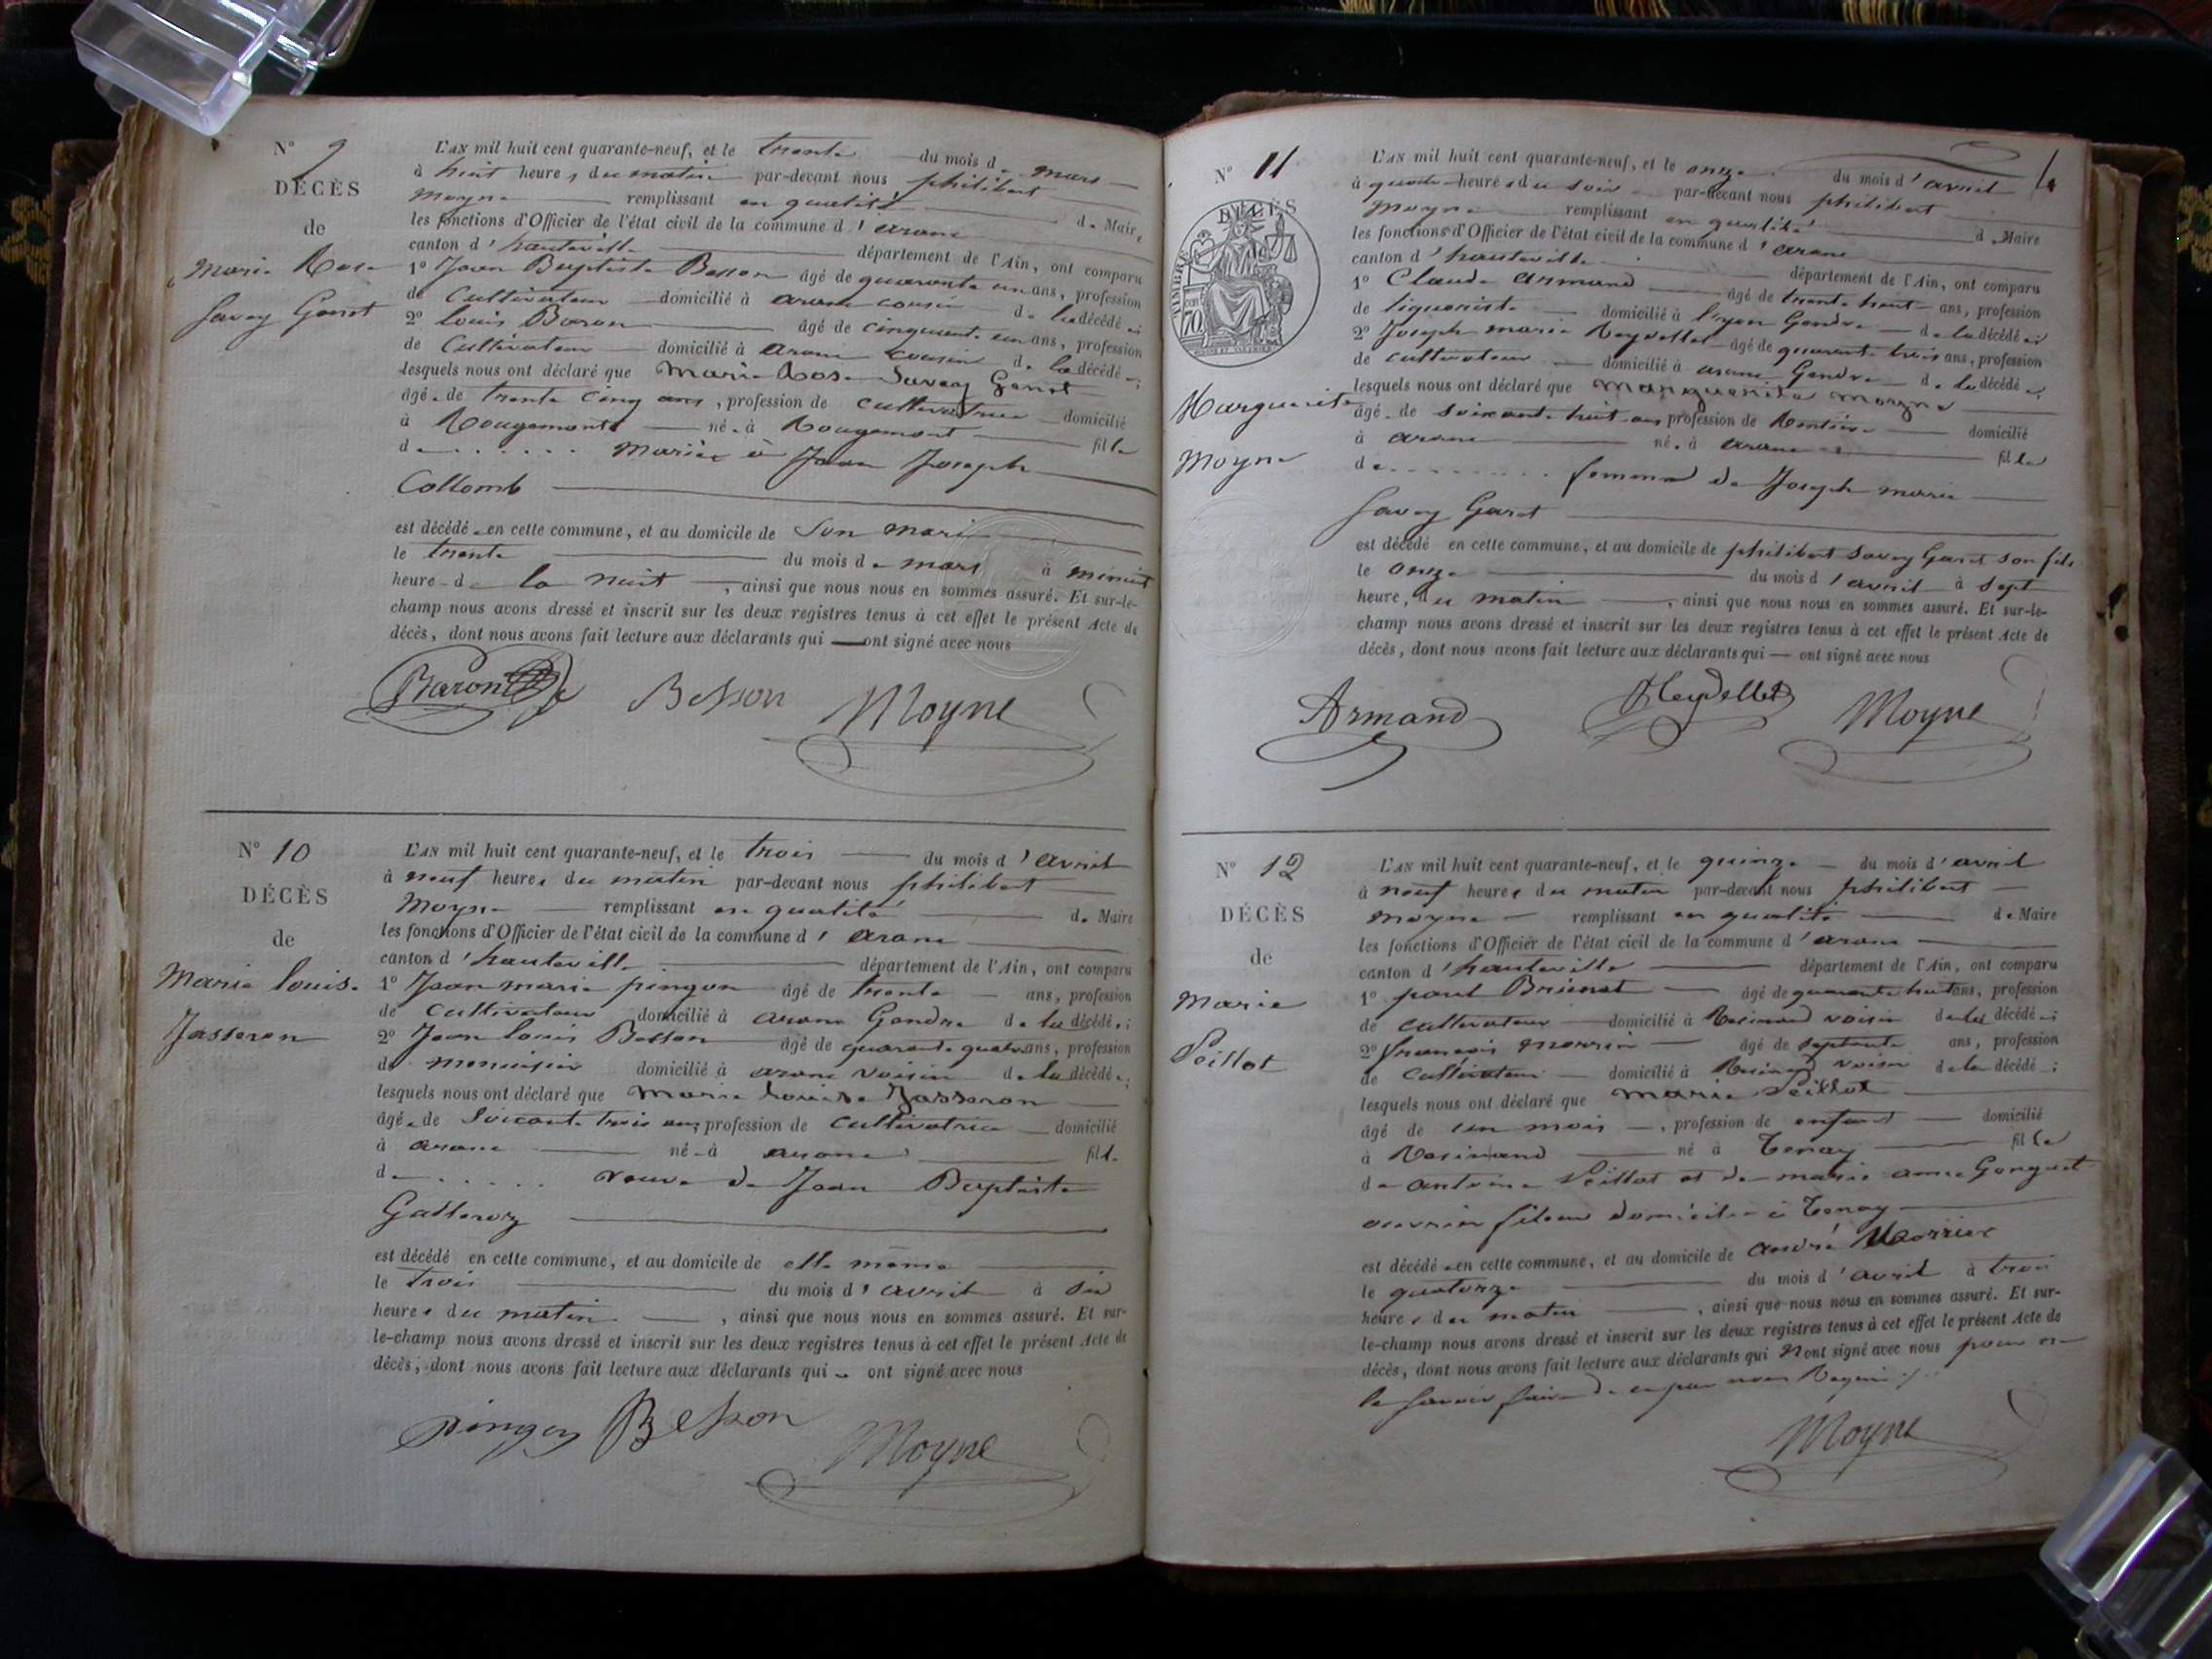 N° 9
DÉCÈS
de
Marie Rose
Savey Garet
L'AN mil huit cent quarante-neuf, et le trente du mois de mars
à huit heures du matin par-devant nous philibert
Moyne remplissant en qualité de Maire
les fonctions d'Officier de l'état civil de la commune d'arane
canton d'hauteville département de l'Ain, ont comparu
1° Jean Baptiste Besson âgé de quarante un ans, profession
de Cultivateur domicilié à arane cousin de la décédée;
2° louis Baron âgé de cinquante un ans, profession
de Cultivateur domicilié à arane cousin de la décédée;
lesquels nous ont déclaré que Marie Rose Savey Garet
âgée de trente cinq ans, profession de cultivatrice domicilié
à Rougemont née à Rougemont fille
de . . . . . . Mariée à Jean Joseph
Collomb
est décédée en cette commune, et au domicile de Son mari
le trente du mois de mars à minuit
heure de la nuit, ainsi que nous nous en sommes assuré. Et sur-le-
champ nous avons dressé et inscrit sur les deux registres tenus à cet effet le présent Acte de
décès, dont nous avons fait lecture aux déclarants qui — ont signé avec nous
Baron Besson Moyne
N° 10
DÉCÈS
de
Marie louise
Jasseron
L'AN mil huit cent quarante-neuf, et le trois du mois d'avril
à neuf heures du matin par-devant nous philibert
Moyne remplissant en qualité de Maire
les fonctions d'Officier de l'état civil de la commune d'arane
canton d'hauteville département de l'Ain, ont comparu
1° Jean marie pingon âgé de trente ans, profession
de Cultivateur domicilié à arane Gendre de la décédée;
2° Jean louis Besson âgé de quarante quatre ans, profession
de menuisier domicilié à arane voisin de la décédée;
lesquels nous ont déclaré que Marie Louise Jasseron
âgée de Soixante trois ans, profession de Cultivatrice domicilié
à arane née à arane fille
de . . . . . . veuve de Jean Baptiste
Galleroz
est décédé en cette commune, et au domicile de elle même
le trois du mois d'avril à six
heures du matin, ainsi que nous nous en sommes assuré. Et sur-
le-champ nous avons dressé et inscrit sur les deux registres tenus à cet effet le présent Acte de
décès, dont nous avons fait lecture aux déclarants qui — ont signé avec nous
pingon Besson Moyne
N° 11
DÉCÈS
TIMBRE
70
Marguerite
Moyne
L'AN mil huit cent quarante-neuf, et le onze du mois d'avril
à quatre heures du soir par-devant nous philibert
Moyne remplissant en qualité de Maire
les fonctions d'Officier de l'état civil de la commune d'arane
canton d'hauteville département de l'Ain, ont comparu
1° Claude Armand âgé de trente huit ans, profession
de liquoriste domicilié à lyon Gendre de la décédée;
2° Joseph marie Reydellet âgé de quarante trois ans, profession
de cultivateur domicilié à arane Gendre de la décédée;
lesquels nous ont déclaré que Marguerite Moyne
âgée de soixante huit ans profession de Rentière domicilié
à arane née à arane fille
de . . . . . . . . femme de Joseph marie
Savey Garet
est décédé en cette commune, et au domicile de philibert Savey Garet son fils
le onze du mois d'avril à sept
heures du matin, ainsi que nous nous en sommes assuré. Et sur-le-
champ nous avons dressé et inscrit sur les deux registres tenus à cet effet le présent Acte de
décès, dont nous avons fait lecture aux déclarants qui — ont signé avec nous
Armand Reydellet Moyne
N° 12
DÉCÈS
de
Marie
Peillot
L'AN mil huit cent quarante-neuf, et le quinze du mois d'avril
à neuf heures du matin par-devant nous philibert
moyne remplissant en qualité de Maire
les fonctions d'Officier de l'état civil de la commune d'arane
canton d'hauteville département de l'Ain, ont comparu
1° paul Brunet âgé de quarante huit ans, profession
de cultivateur domicilié à Resinand voisin de la décédée;
2° françois Morrier âgé de septante ans, profession
de Cultivateur domicilié à Resinand voisin de la décédé;
lesquels nous ont déclaré que marie Peillot
âgé de un mois, profession de enfant domicilié
à Resinand né à Tenay fille
de antoine Peillot et de marie anne Gonguet
ouvrier fileur domicilié à Tenay
est décédée en cette commune, et au domicile de andré Morrier
le quatorze du mois d'avril à trois
heures du matin, ainsi que nous nous en sommes assuré. Et sur-
le-champ nous avons dressé et inscrit sur les deux registres tenus à cet effet le présent Acte de
décès, dont nous avons fait lecture aux déclarants qui N'ont signé avec nous pour ne
le savoir faire de ce par nous Requis
Moyne